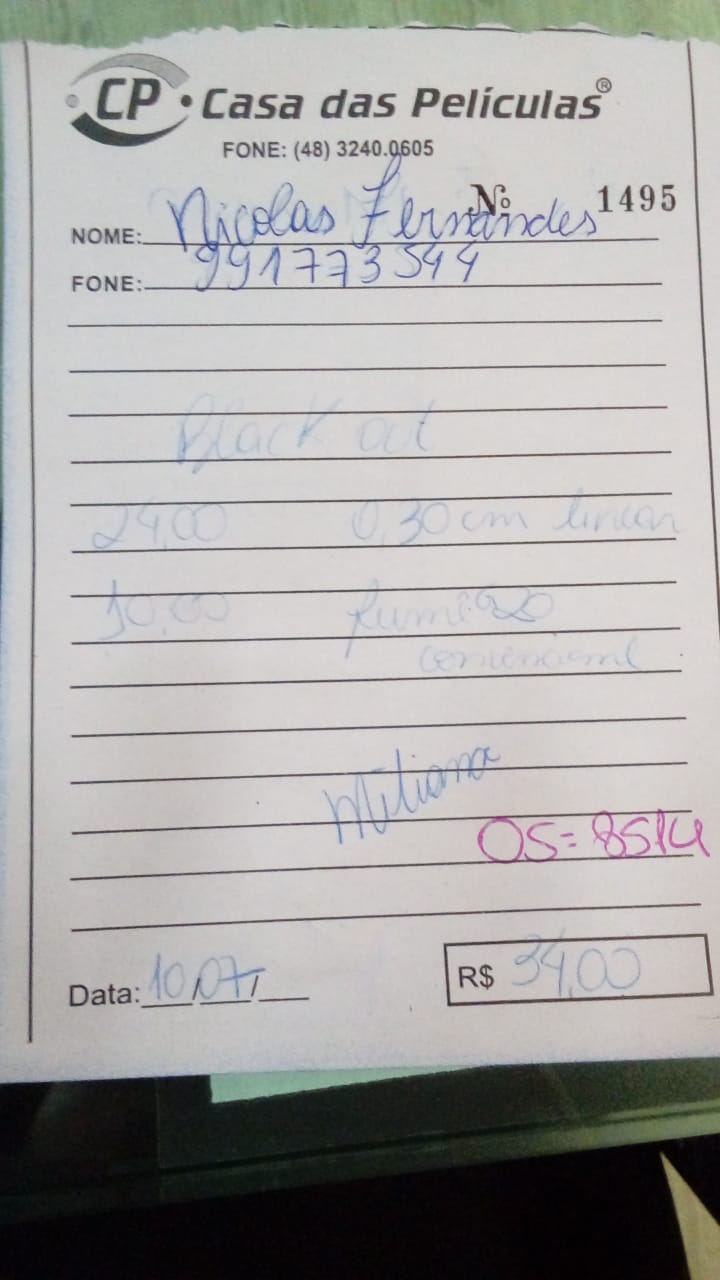 CP • Casa das Películas®
FONE: (48) 3240.0605
Nº 1495
NOME: Nicolas Fernandes
FONE: 991773544
Black out
24,00 0,30 cm linear
10,00 fumê G20
convencional
OS= 8514
Data: 10/07/
R$ 34,00